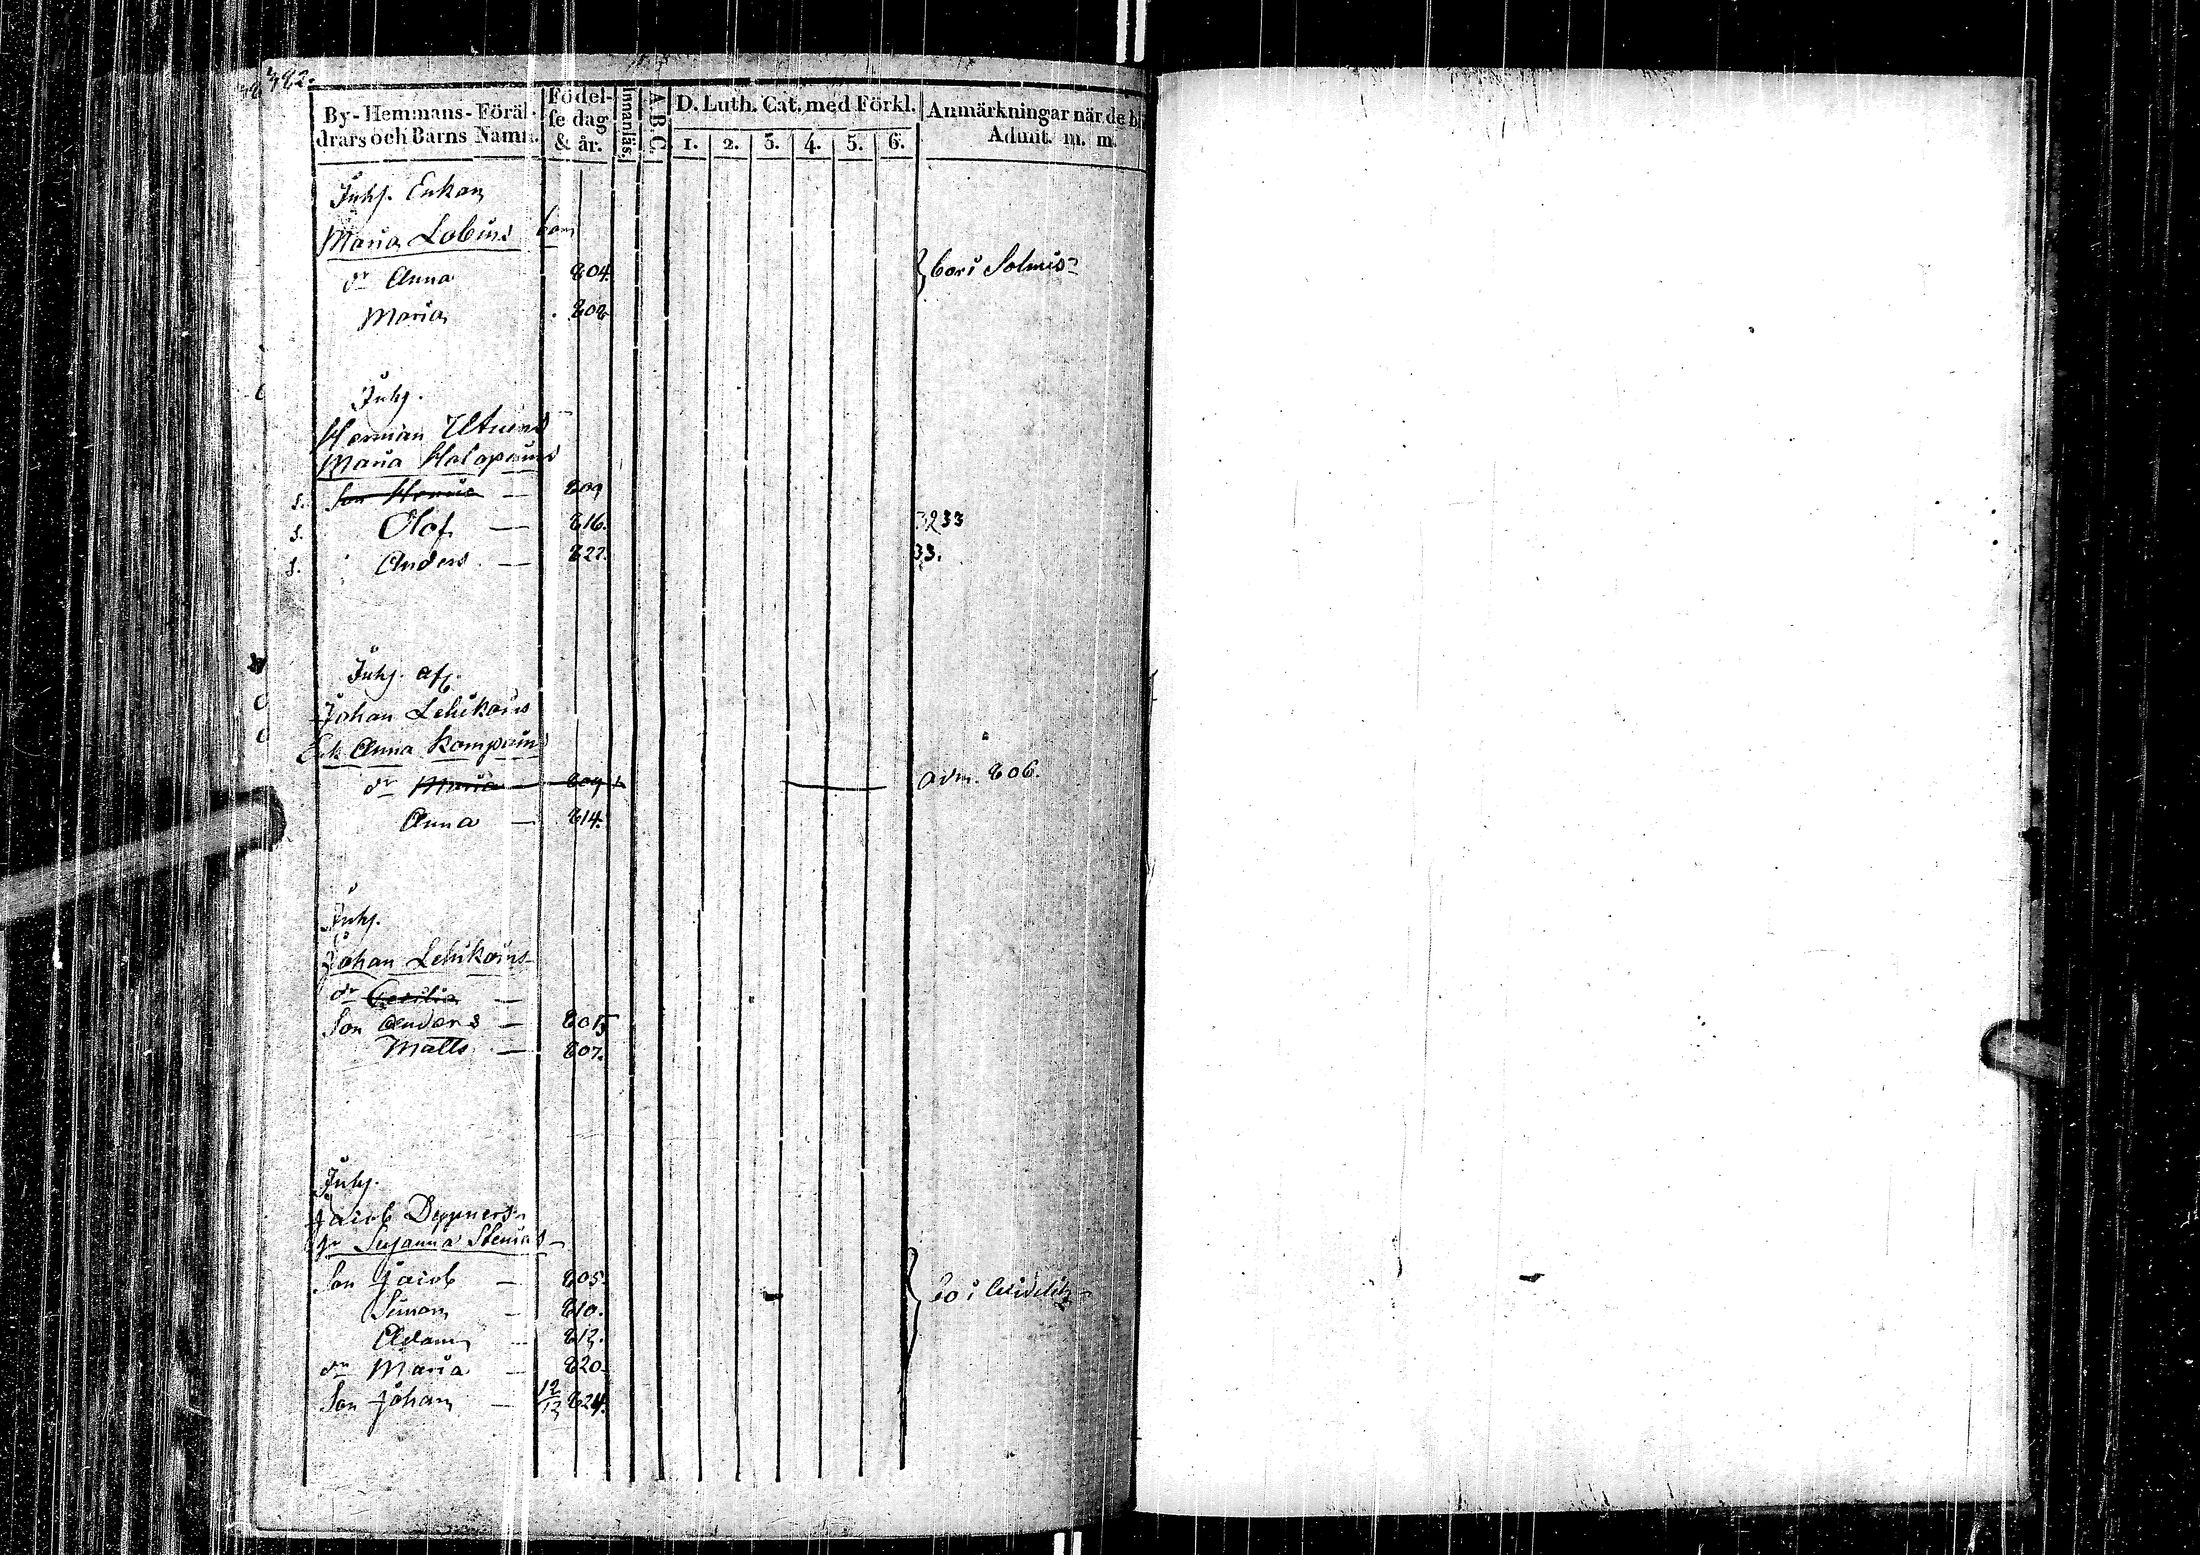 382.
By-Hemmans-Föräl-
drars och Barns Namn.
Födel-
se dag
& år.
Innanläs.
A.B.C.
D. Luth. Cat. med Förkl.
1. 2. 3. 4. 5. 6.
Anmärkningar när de bl
Admit. m. m.
Inhs. Enkan
Maria Lobins
dr Anna 804.
bor i
Maria 808
Inhs.
Herman
Maria
s. Son 809
s. Olof — 816. 3233
s. Anders — 822. 33.
Inhs. afs.
Johan Lehikoins
Enk Anna Kompains
dr Maria 809 adm. 806.
Anna — 814.
Inhs.
Johan Lehikoins
dr Cecilia —
Son Anders — 805
Matts — 807.
Inhs.
Jacob
hr Susanna
Son Jacob — 805.
Simon — 810. bo i
Adam — 812.
dr Maria — 820
Son Johan — 12/12 824.